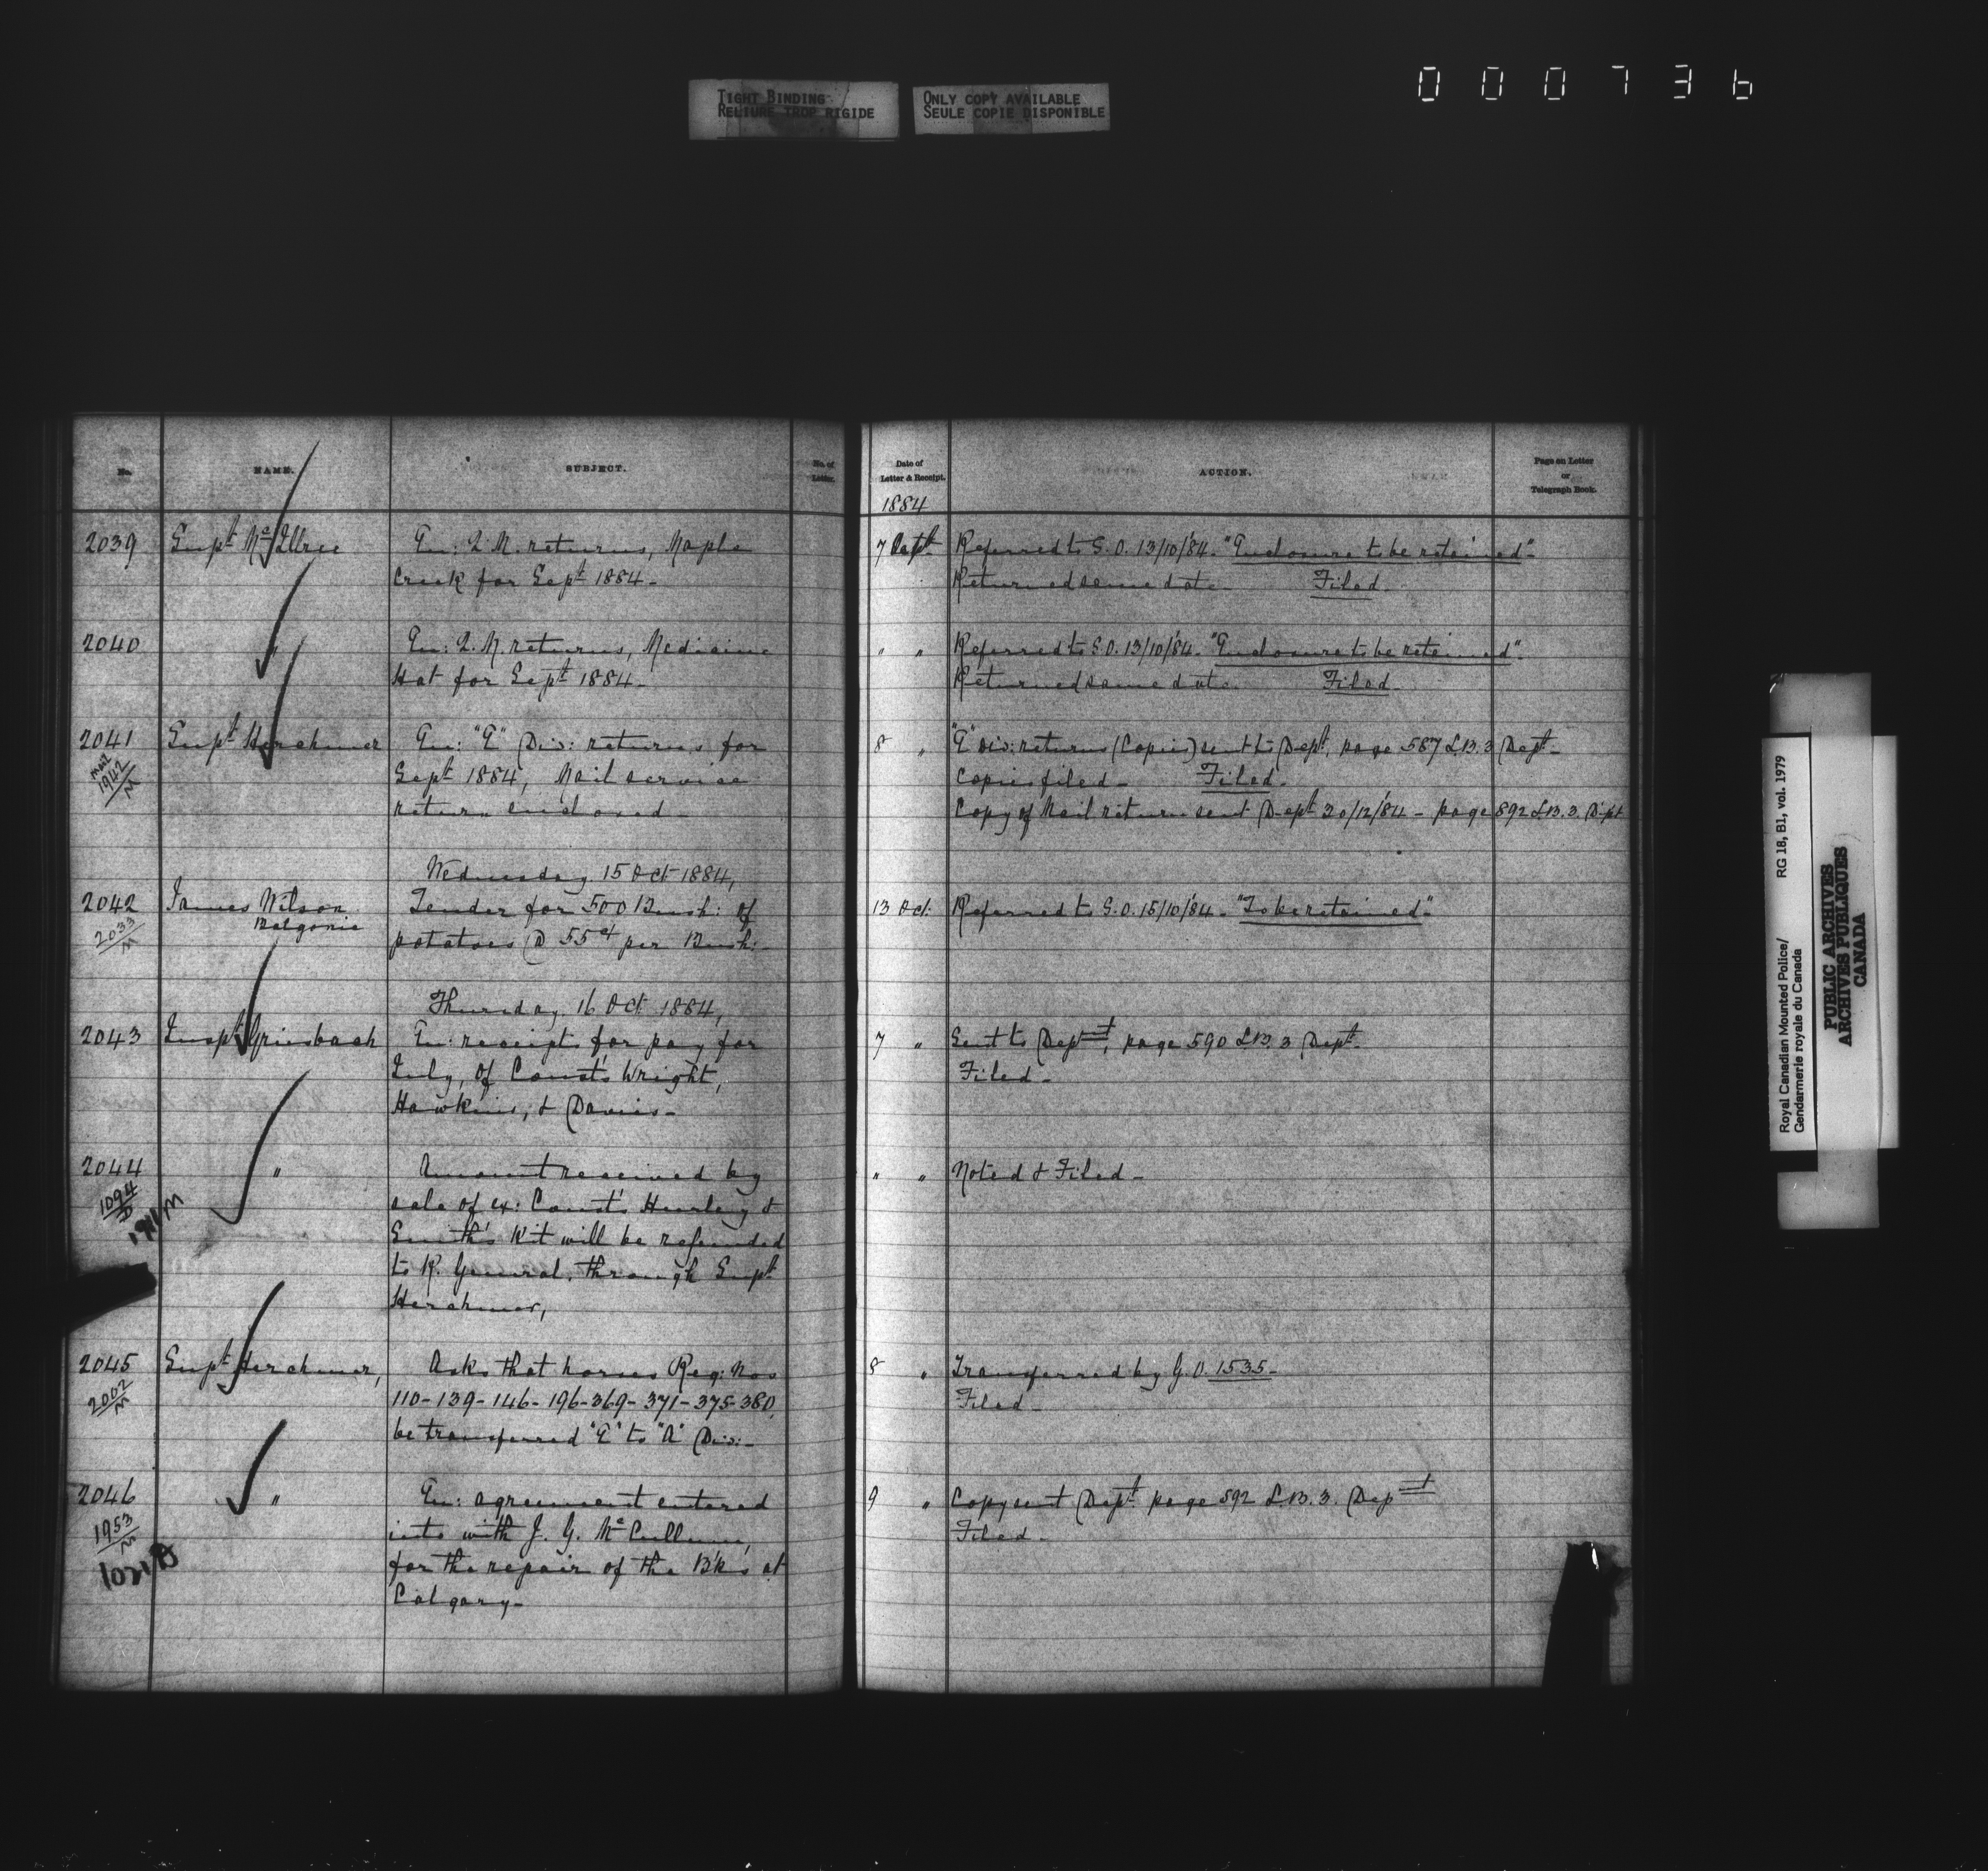 TIGHT BINDING
RELIURE TROP RIGIDE
ONLY COPY AVAILABLE
SEULE COPIE DISPONIBLE
000736
No. NAME. SUBJECT. No. of Letter.
2039 Supt McIllree En: Q.M. returns, Maple
Creek for Sept 1884-
2040 " En: Q.M. returns, Medicine
Hat for Sept 1884-
2041 Supt Herchmer En: "E" Div: returns for
1942/M Sept 1884, Mail service
return enclosed-
Wednesday 15 Oct 1884,
2042 James Wilson Tender for 500 Bush: of
2033/M Balgonie potatoes @ 55 cts per Bush:-
Thursday 16 Oct 1884,
2043 Inspt Griesbach En: receipts for pay for
July, of Const's Wright,
Hawkins, & Davies-
2044 " Amount received by
1094/D sale of ex: Const's Hurley &
1911 M Smith's Kit will be refunded
to R. General, through Supt
Herchmer,
2045 Supt Herchmer, Asks that horses Reg: Nos
2002/M 110-139-146-196-369-371-375-380
be transferred "E" to "A" Div:-
2046 " En: agreement entered
1953/M into with J. G. McCullum,
for the repair of the B'ks at
Calgary-
Date of Letter & Receipt. ACTION. Page on Letter or Telegraph Book.
1884
7 Referred to S.O. 13/10/84. "Enclosure to be retained"-
Returned same date- Filed-
" " Referred to S.O. 13/10/84. "Enclosure to be retained".
Returned same date- Filed-
8 " "E" Div: returns (Copies) sent to Dept, page 587 L.B. 3 Dept-
Copies filed- Filed-
Copy of Mail return sent Dept 30/12/84 - page 892 L.B. 3. Dept
13 Oct: Referred to S.O. 15/10/84- "To be retained"-
7 " Sent to Dept, page 590 L.B. 3 Dept-
Filed-
" " Noted & Filed-
8 " Transferred by G.O. 1535-
Filed-
9 " Copy sent Dept page 592 L.B. 3. Dept
Filed-
Royal Canadian Mounted Police/ RG 18, B1, vol. 1979
Gendarmerie royale du Canada
PUBLIC ARCHIVES
ARCHIVES PUBLIQUES
CANADA